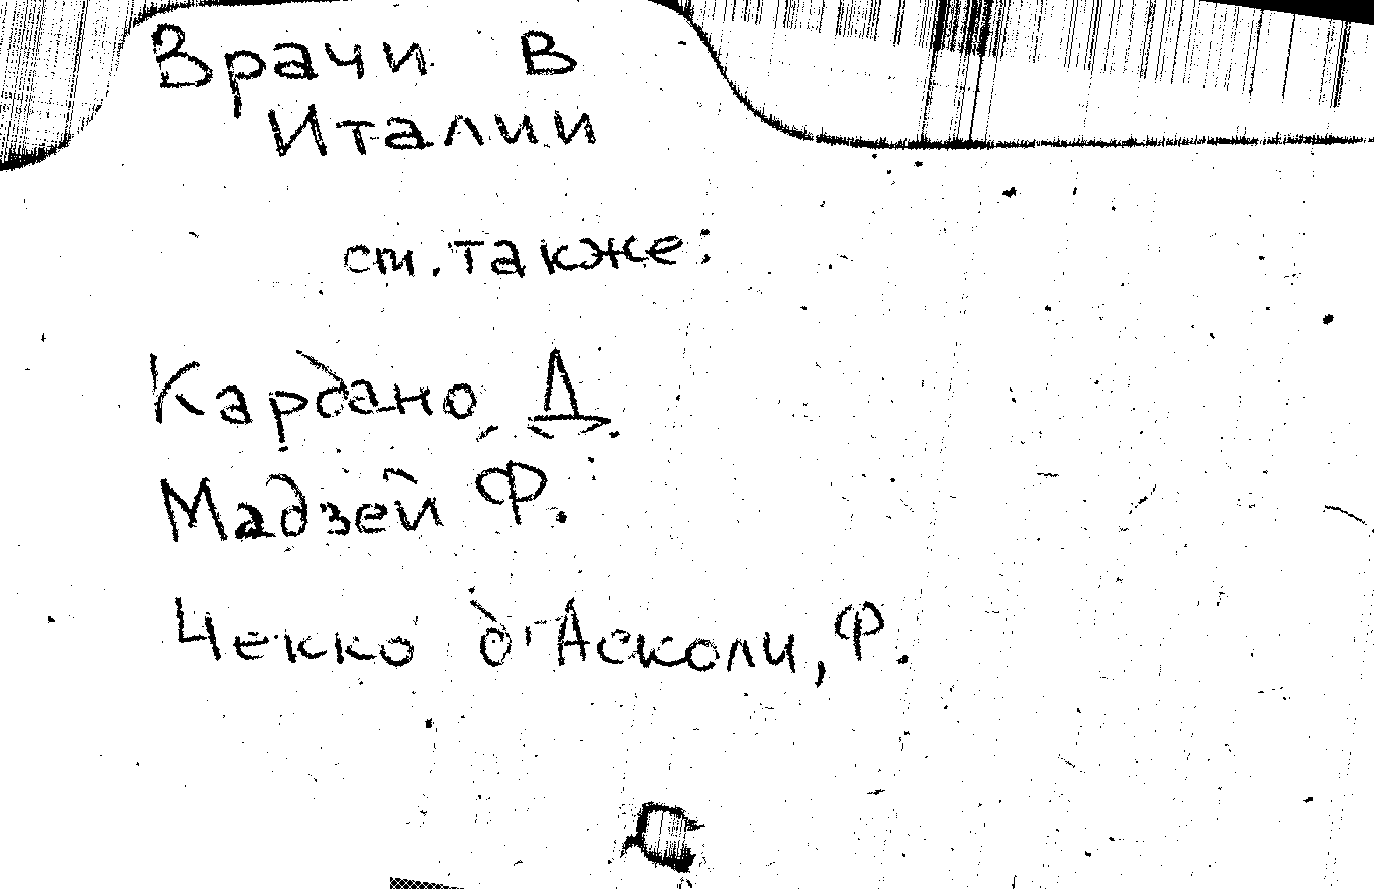 Врачи в
Италии
см. также:
Кардано, Д.
Мадзей Ф.
Чекко д'Асколи, Ф.